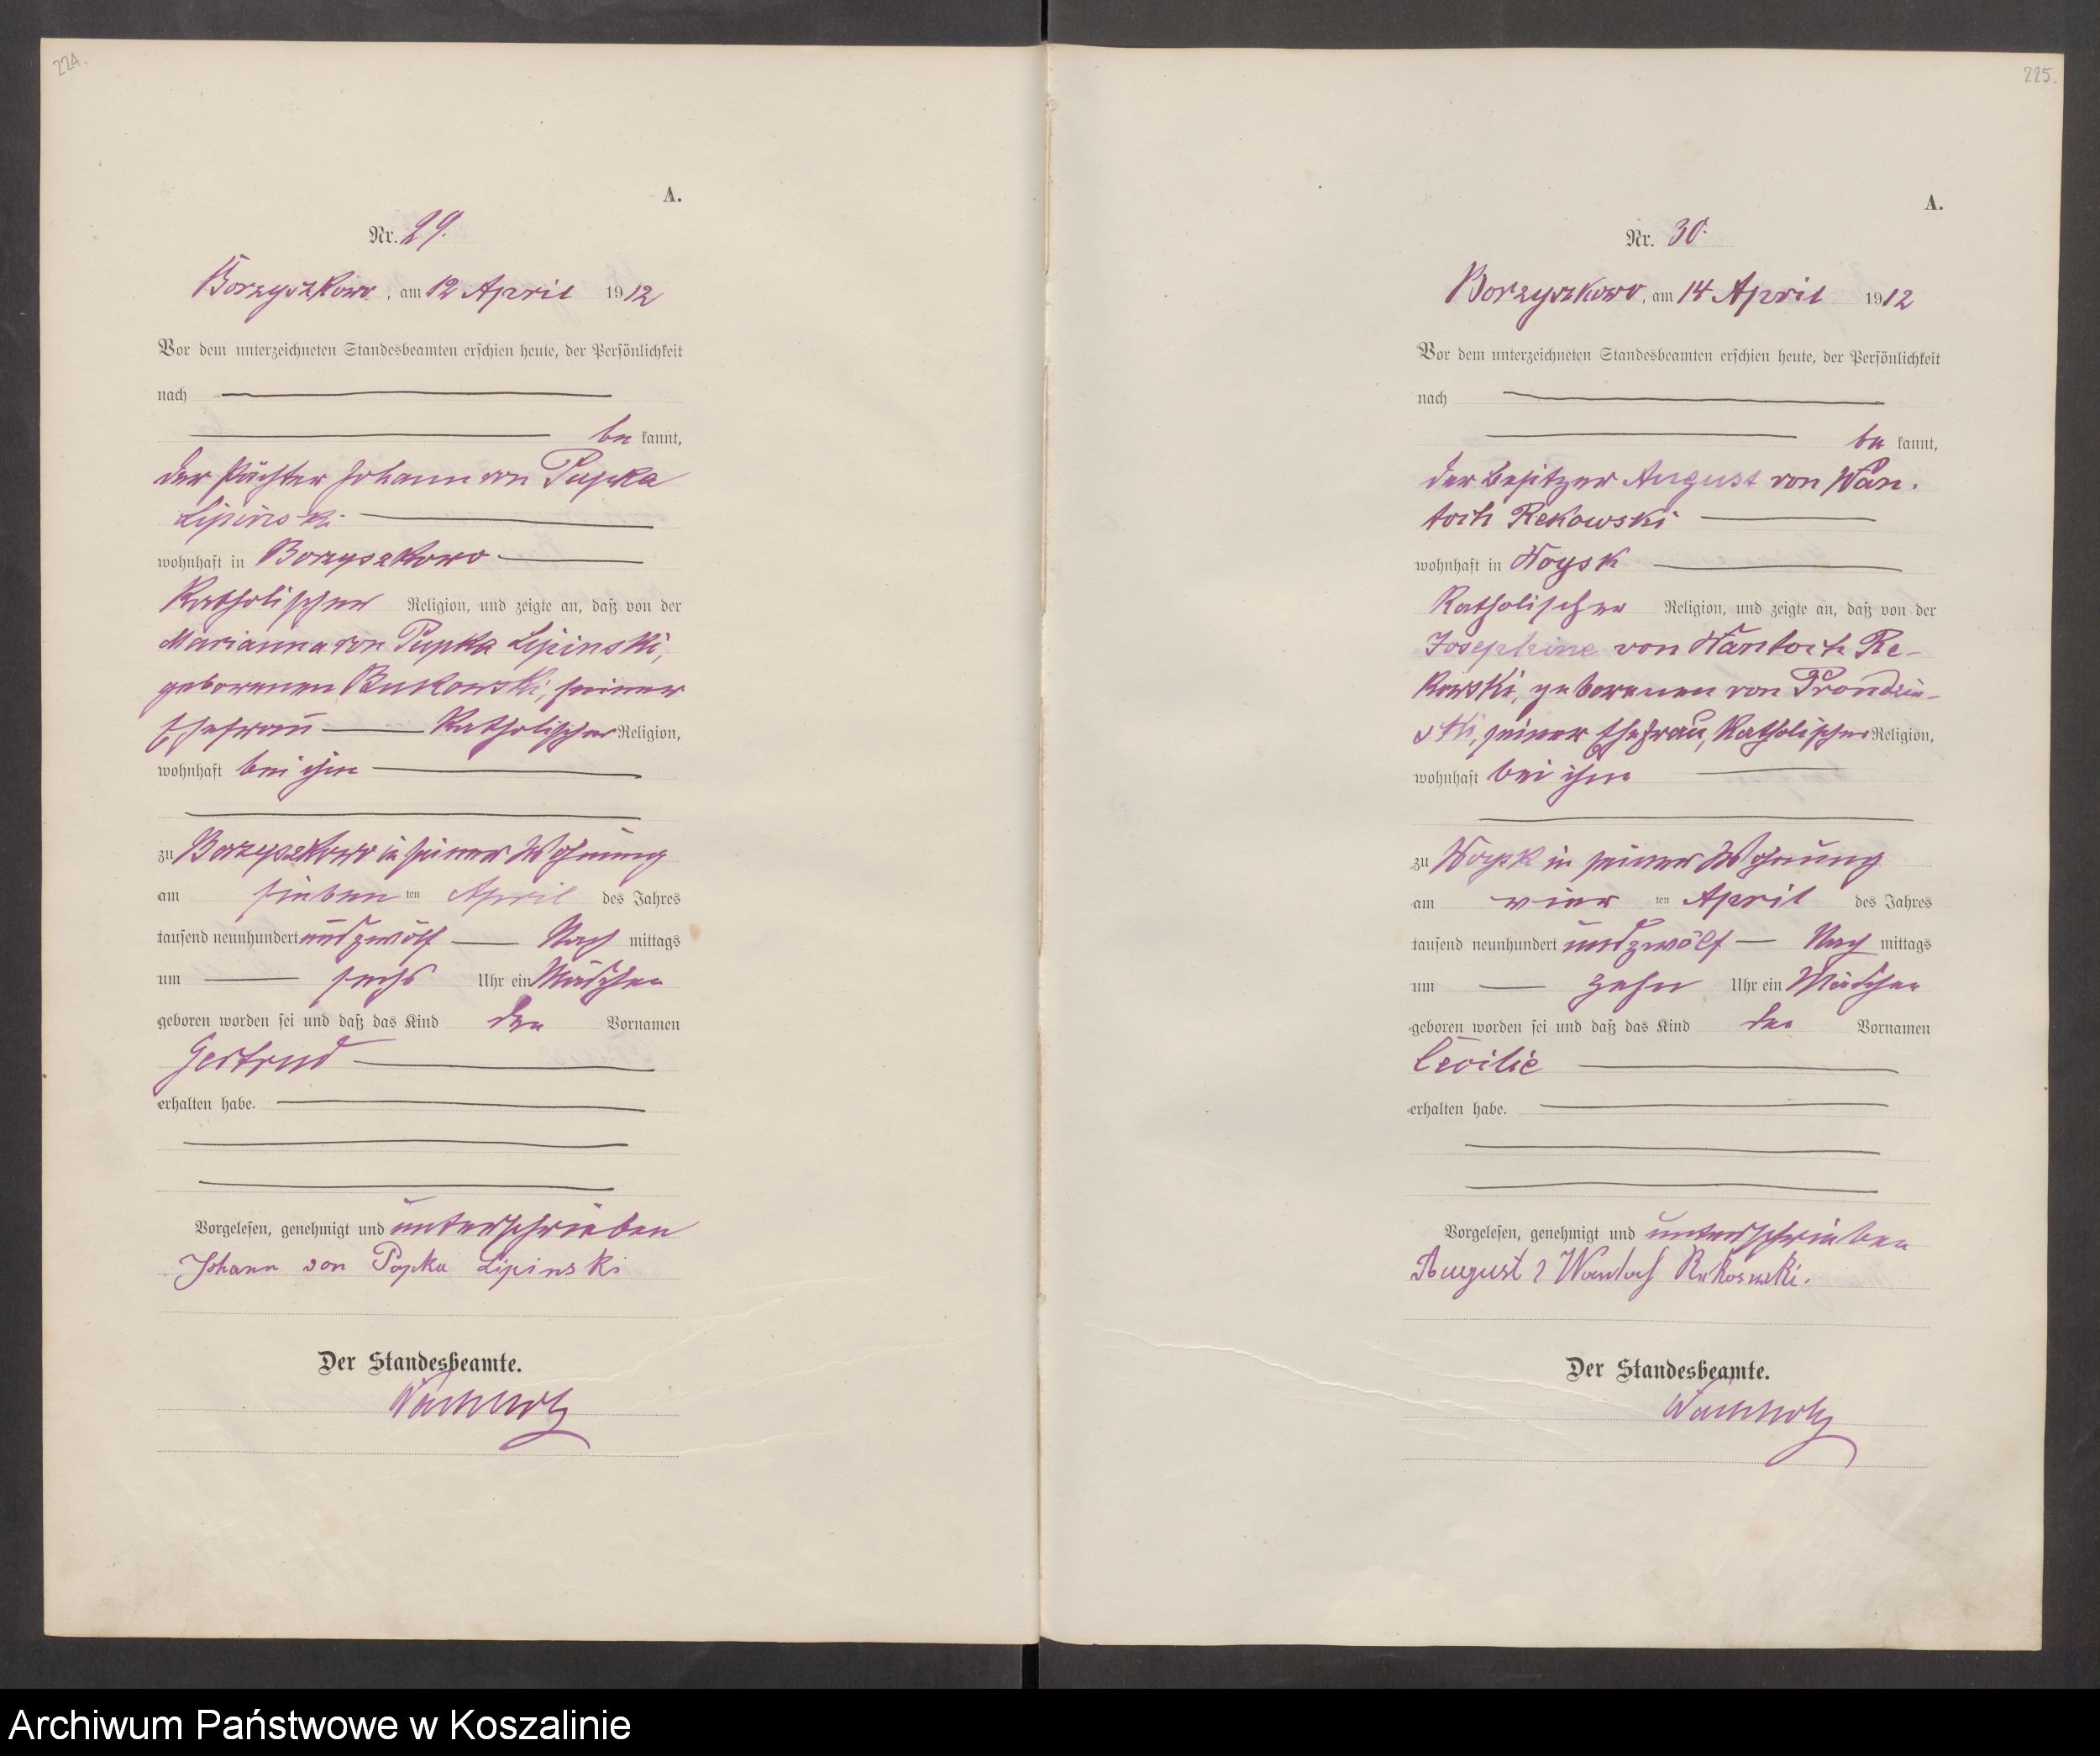 224.
A.
Nr. 29.
Borzyszkowo, am 12 April 1912
Vor dem unterzeichneten Standesbeamten erschien heute, der Persönlichkeit
nach
be kannt,
der Pächter Johann von Pupka
Lipinski
wohnhaft in Borzyszkowo
Katholischer Religion, und zeigte an, daß von der
Marianna von Pupka Lipinski,
geborenen Bukowski, seiner
Ehefrau Katholischer Religion,
wohnhaft bei ihm
zu Borzyszkowo in seiner Wohnung
am sieben ten April des Jahres
tausend neunhundert und zwölf Nach mittags
um sechs Uhr ein Mädchen
geboren worden sei und daß das Kind den Vornamen
Gertrud
erhalten habe.
Vorgelesen, genehmigt und unterschrieben
Johann von Popka Lipinski
Der Standesbeamte.
Wachholz
225.
A.
Nr. 30.
Borzyszkowo, am 14 April 1912
Vor dem unterzeichneten Standesbeamten erschien heute, der Persönlichkeit
nach
be kannt,
der Besitzer August von Wan-
toch Rekowski
wohnhaft in Woysk
Katholischer Religion, und zeigte an, daß von der
Josephine von Wantoch Re-
kowski, geborenen von Prondzin-
ski, seiner Ehefrau, Katholischer Religion,
wohnhaft bei ihm
zu Woysk in seiner Wohnung
am vier ten April des Jahres
tausend neunhundert und zwölf Nach mittags
um zehn Uhr ein Mädchen
geboren worden sei und daß das Kind den Vornamen
Cecilie
erhalten habe.
Vorgelesen, genehmigt und unterschrieben
August v Wantoch Rekowski.
Der Standesbeamte.
Wachholz
Archiwum Państwowe w Koszalinie